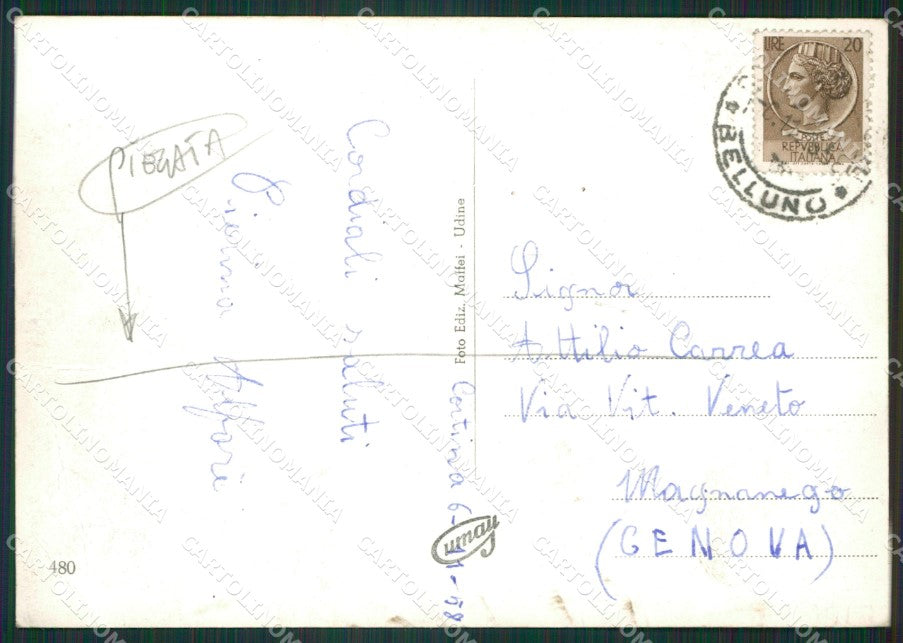 PIEGATA
Cordiali saluti
Pierina Alfarè
Cortina 6-11-58
Foto Ediz. Maffei - Udine
LIRE 20
POSTE
REPVBBLICA
ITALIANA
* BELLUNO *
Signor
Attilio Carrea
Via Vit. Veneto
Magnanego
(GENOVA)
480
CARTOLINOMANIA